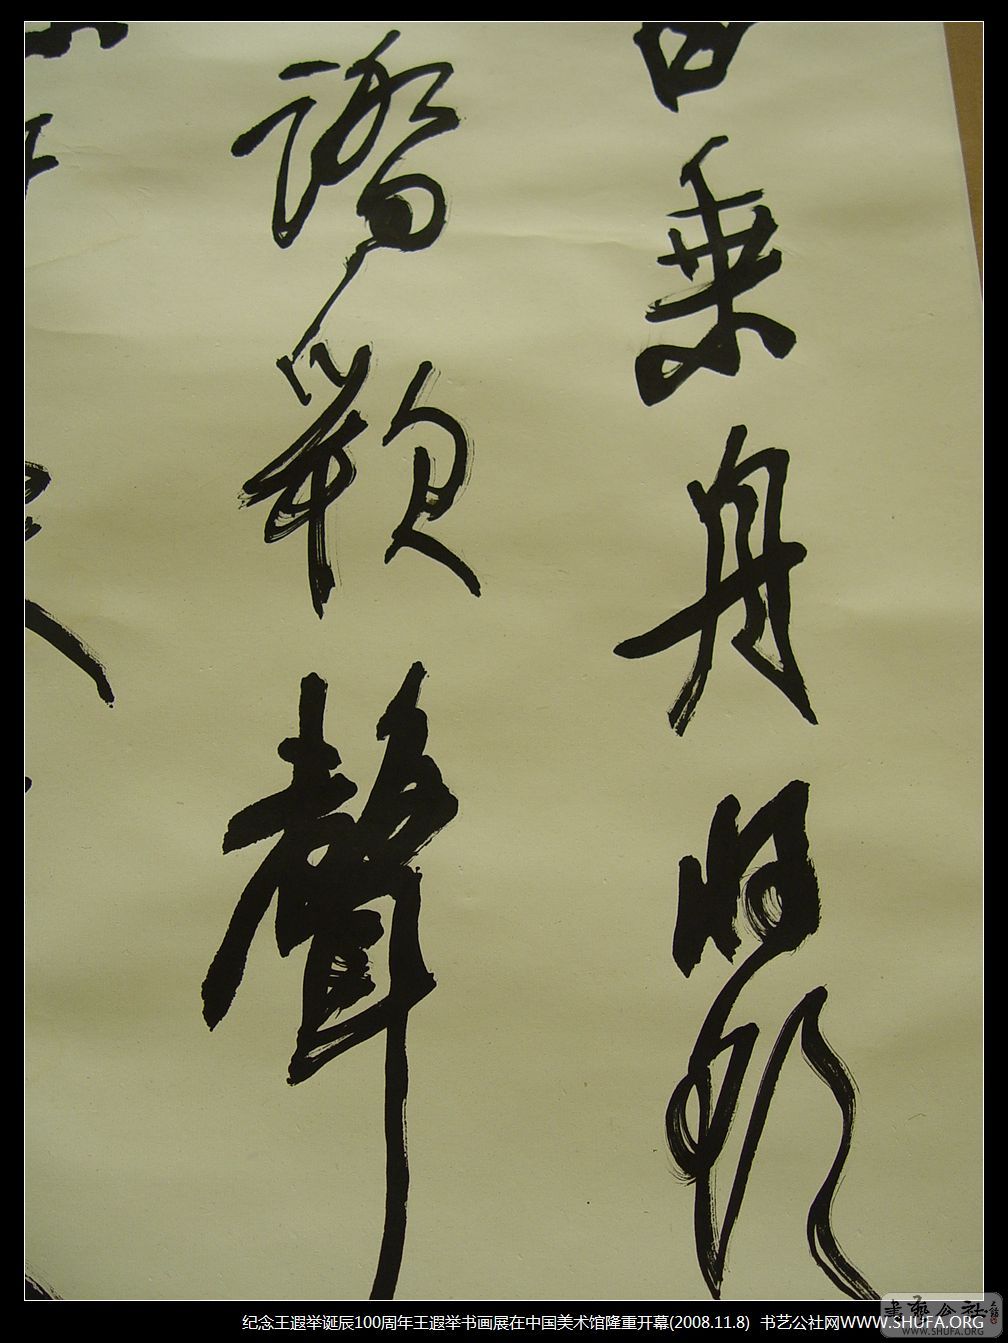 白乘舟將欲
踏歌聲
纪念王遐举诞辰100周年王遐举书画展在中国美术馆隆重开幕(2008.11.8) 书艺公社网WWW.SHUFA.ORG
書藝公社
WWW.SHUFA.ORG